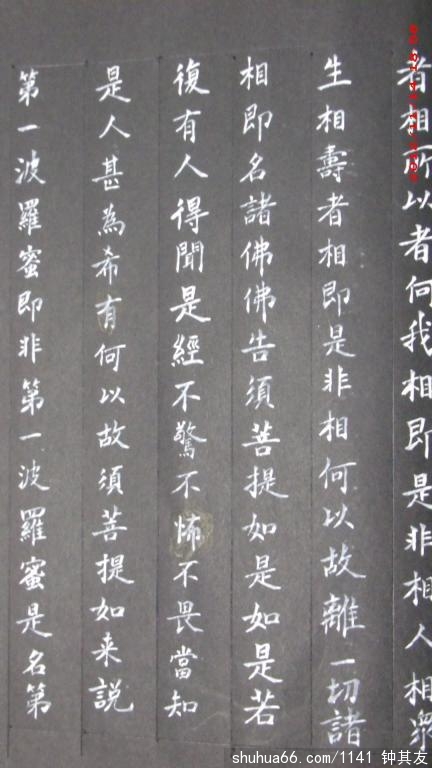 者相所以者何我相即是非相人相眾
生相壽者相即是非相何以故離一切諸
相即名諸佛佛告須菩提如是如是若
復有人得聞是經不驚不怖不畏當知
是人甚為希有何以故須菩提如来說
第一波羅蜜即非第一波羅蜜是名第
shuhua66.com/1141 钟其友